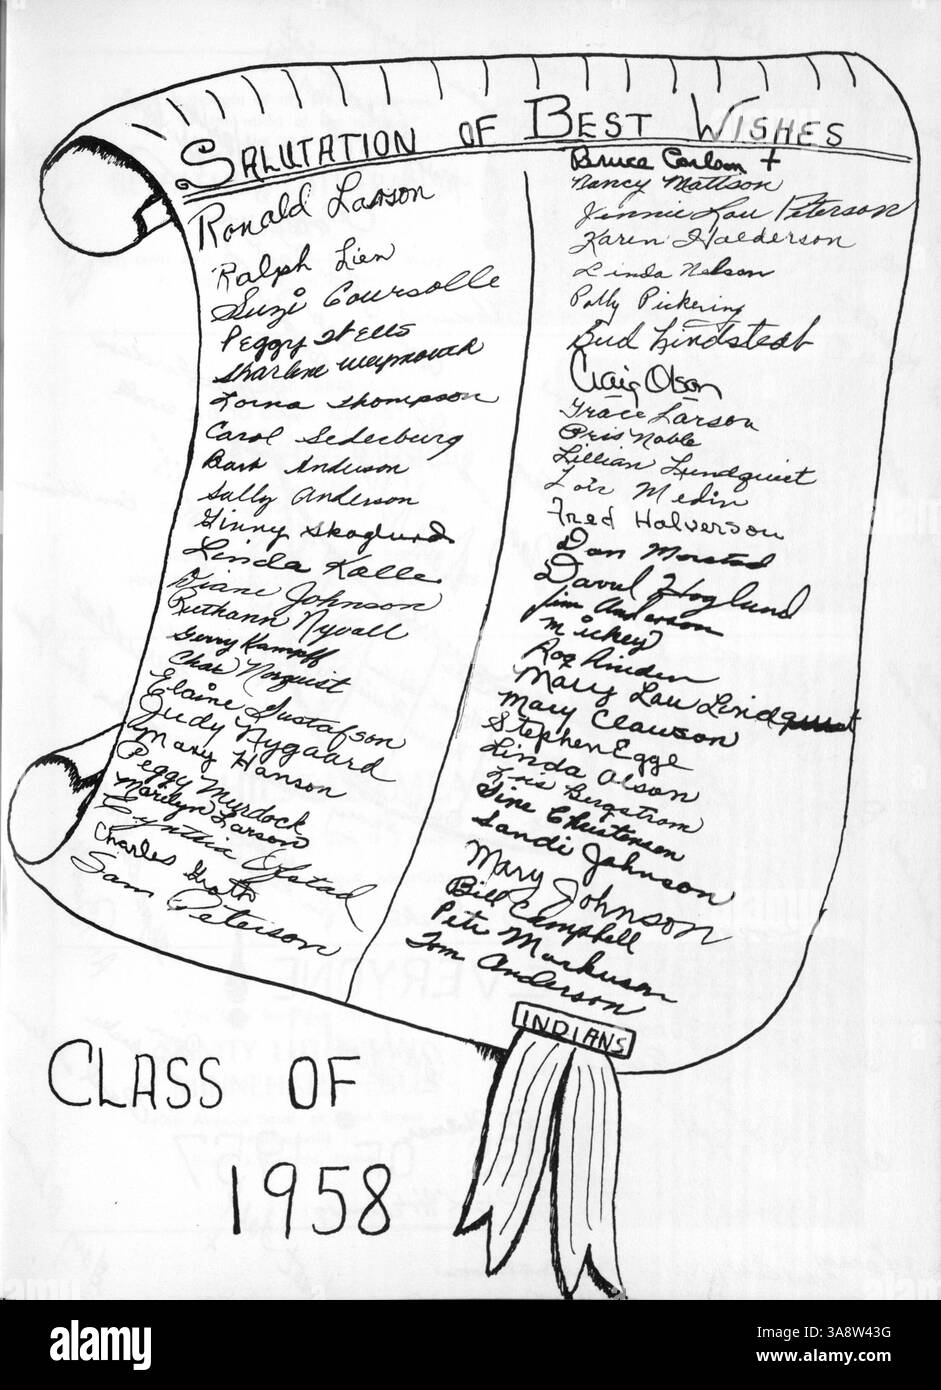 SALUTATION OF BEST WISHES
Ronald Larson
Ralph Lien
Suzi Coursolle
Peggy Wells
Sharlene Weymouth
Lorna Thompson
Carol Sederburg
Barb Anderson
Sally Anderson
Ginny Skoglund
Linda Kalle
Diane Johnson
Ruthann Nyvall
Gerry Kampff
Char Norquist
Elaine Gustafson
Judy Nygaard
Mary Hanson
Peggy Murdock
Marilyn Larson
Cynthia Ofstad
Charles Groth
Sam Peterson
Bruce Carlson +
Nancy Mattson
Jinnie Lou Peterson
Karen Halderson
Linda Nelson
Polly Pickering
Bud Lindstedt
Craig Olson
Grace Larson
Pris Noble
Lillian Lundquist
Lois Medin
Fred Halverson
Dan Morstad
David Hoglund
Jim Anderson
Mickey
Roz Linden
Mary Lou Lindquist
Mary Clawson
Stephen Egge
Linda Olson
Kris Bergstrom
Tine Christensen
Sandi Johnson
Mary Johnson
Bill Campbell
Pete Markuson
Tom Anderson
INDIANS
CLASS OF
1958
alamy
Image ID: 3A8W43G
www.alamy.com